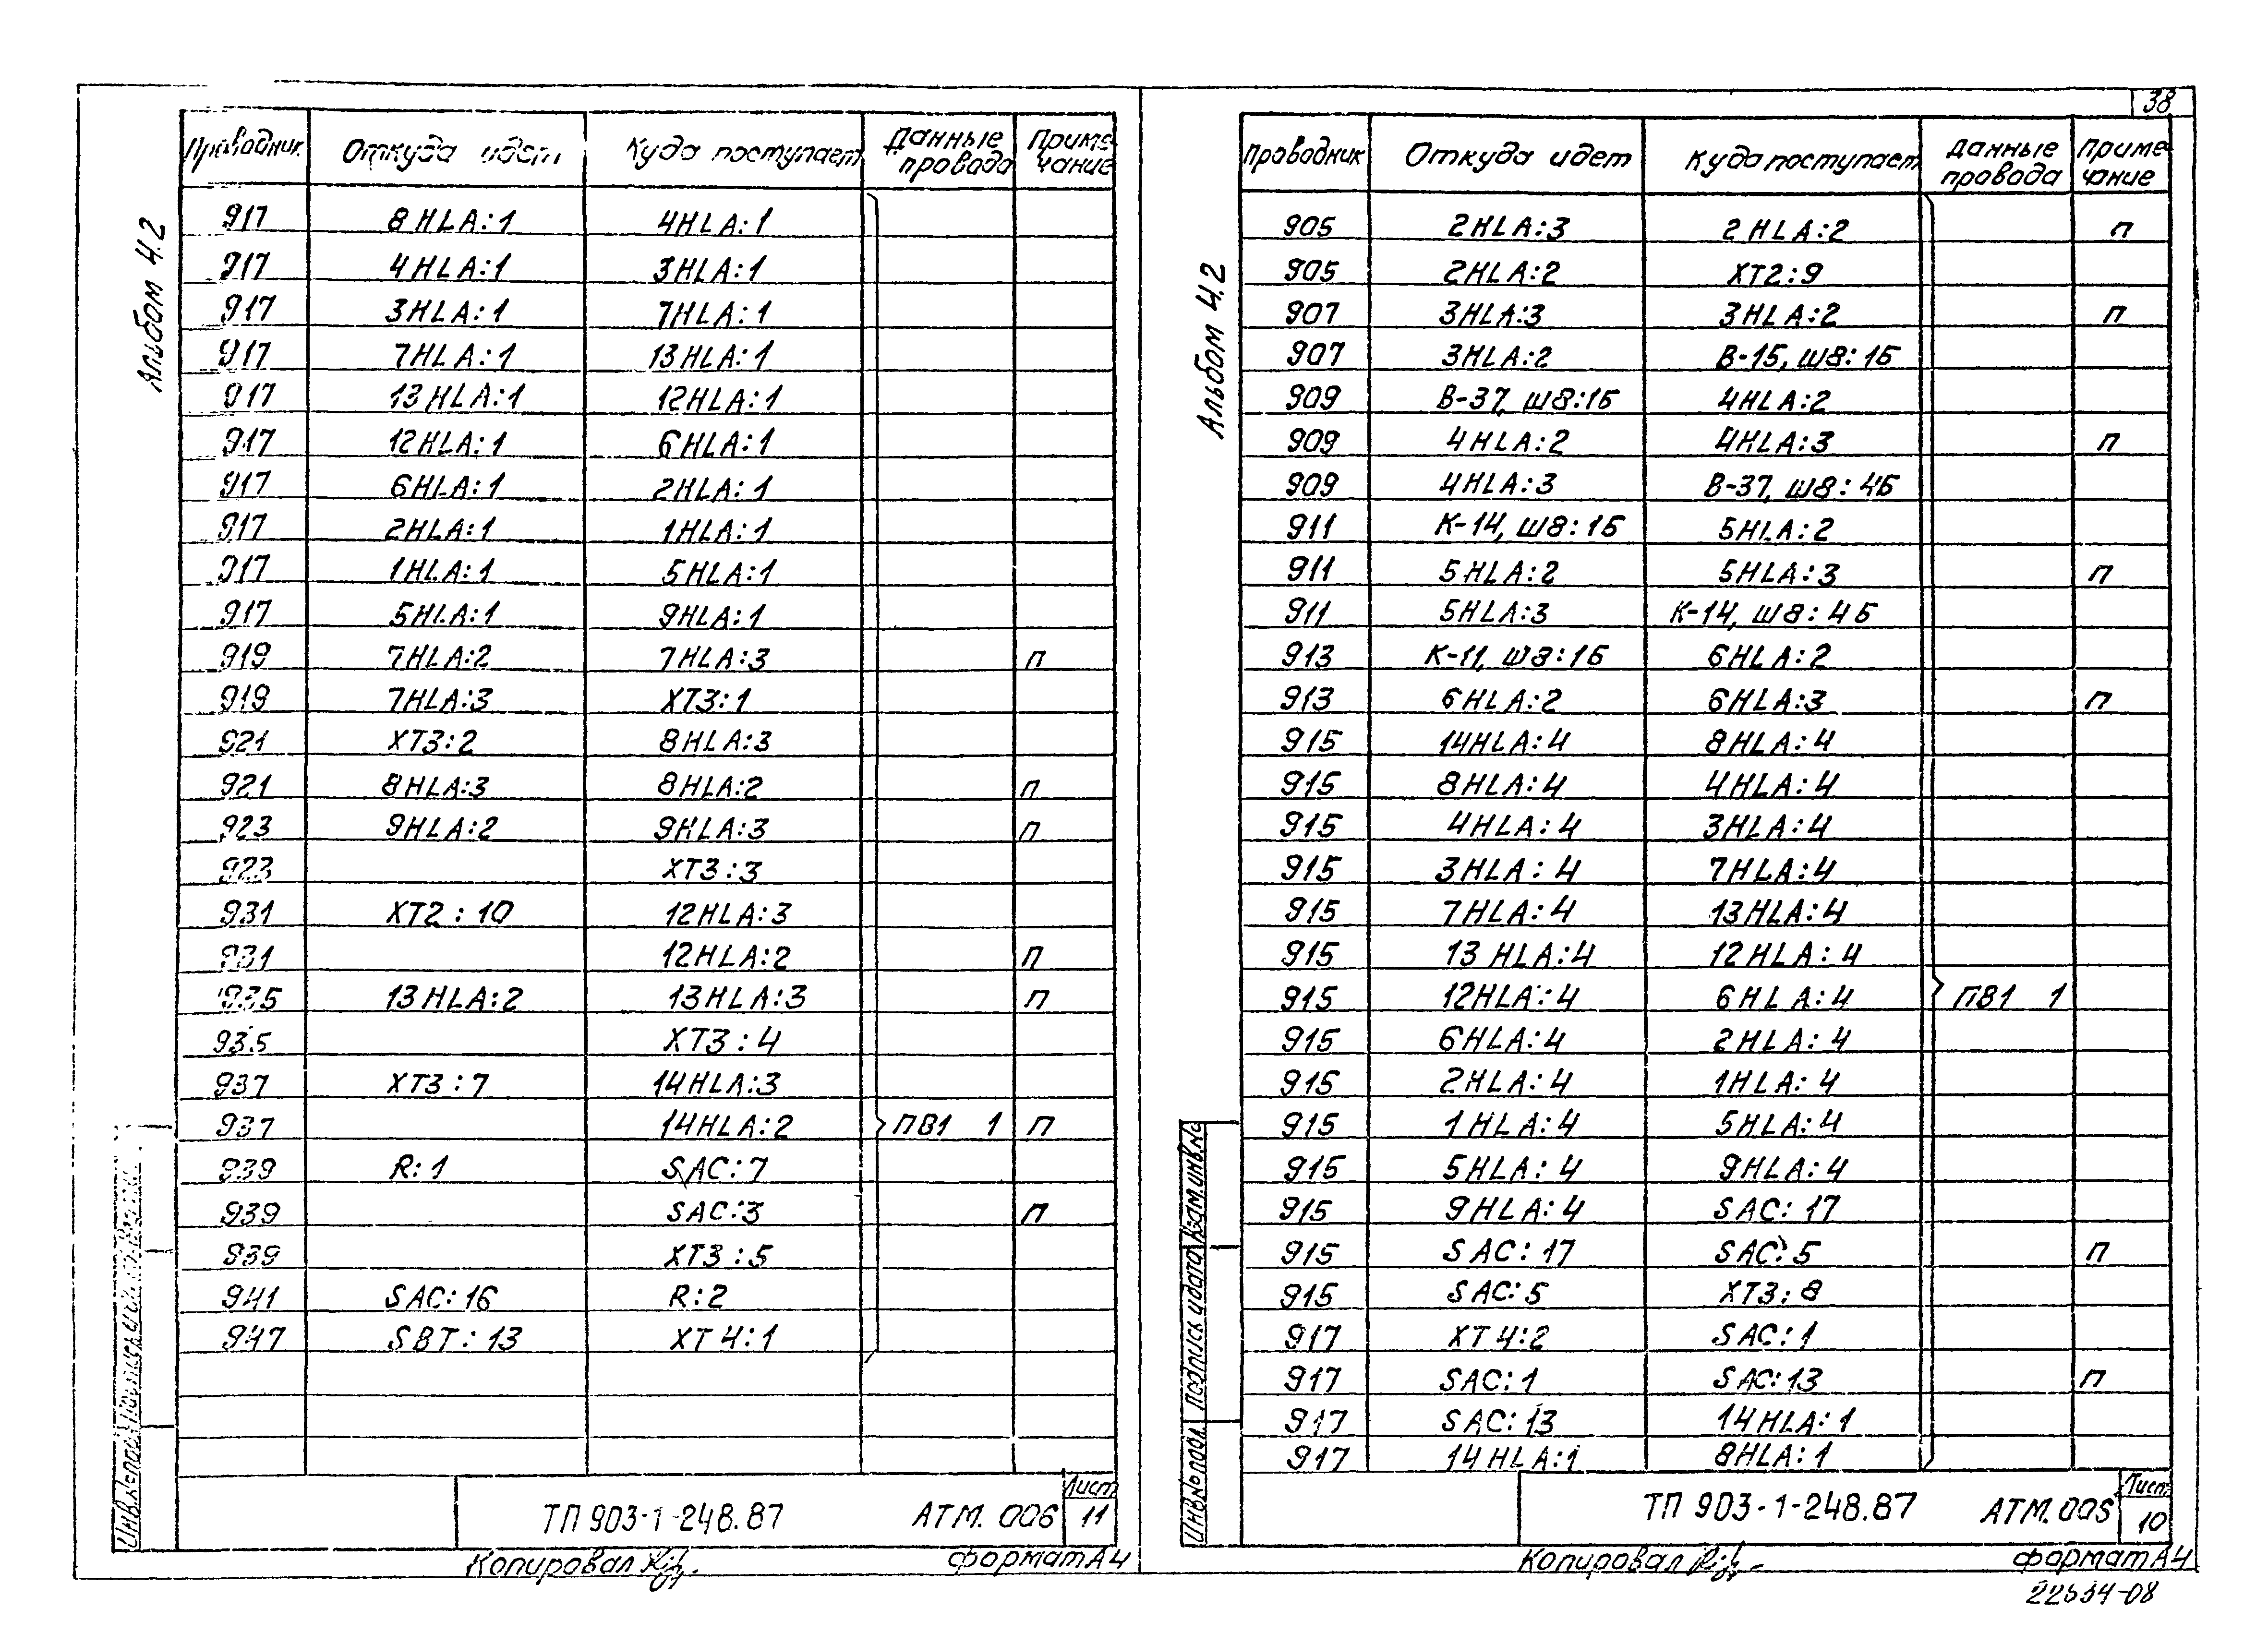 38
Альбом 4.2
Проводник Откуда идет Куда поступает Данные провода Приме-чание
917 8HLA:1 4HLA:1
917 4HLA:1 3HLA:1
917 3HLA:1 7HLA:1
917 7HLA:1 13HLA:1
917 13HLA:1 12HLA:1
917 12HLA:1 6HLA:1
917 6HLA:1 2HLA:1
917 2HLA:1 1HLA:1
917 1HLA:1 5HLA:1
917 5HLA:1 9HLA:1
919 7HLA:2 7HLA:3 П
919 7HLA:3 XT3:1
921 XT3:2 8HLA:3
921 8HLA:3 8HLA:2 П
923 9HLA:2 9HLA:3 П
923 XT3:3
931 XT2:10 12HLA:3
931 12HLA:2 П
935 13HLA:2 13HLA:3 П
935 XT3:4
937 XT3:7 14HLA:3
937 14HLA:2 ПВ1 1 П
939 R:1 SAC:7
939 SAC:3 П
939 XT3:5
941 SAC:16 R:2
947 SBT:13 XT4:1
Инв.№подл. Подпись и дата
ТП 903-1-248.87 АТМ.006 Лист 11
Копировал Формат А4
Альбом 4.2
Проводник Откуда идет Куда поступает Данные провода Приме-чание
905 2HLA:3 2HLA:2 П
905 2HLA:2 XT2:9
907 3HLA:3 3HLA:2 П
907 3HLA:2 В-15, Ш8:1Б
909 В-37, Ш8:1Б 4HLA:2
909 4HLA:2 4HLA:3 П
909 4HLA:3 В-37, Ш8:4Б
911 К-14, Ш8:1Б 5HLA:2
911 5HLA:2 5HLA:3 П
911 5HLA:3 К-14, Ш8:4Б
913 К-11, Ш8:1Б 6HLA:2
913 6HLA:2 6HLA:3 П
915 14HLA:4 8HLA:4
915 8HLA:4 4HLA:4
915 4HLA:4 3HLA:4
915 3HLA:4 7HLA:4
915 7HLA:4 13HLA:4
915 13HLA:4 12HLA:4
915 12HLA:4 6HLA:4 ПВ1 1
915 6HLA:4 2HLA:4
915 2HLA:4 1HLA:4
915 1HLA:4 5HLA:4
915 5HLA:4 9HLA:4
915 9HLA:4 SAC:17
915 SAC:17 SAC:5 П
915 SAC:5 XT3:8
917 XT4:2 SAC:1
917 SAC:1 SAC:13 П
917 SAC:13 14HLA:1
917 14HLA:1 8HLA:1
Инв.№подл. Подпись и дата Взам.инв.№
ТП 903-1-248.87 АТМ.005 Лист 10
Копировал Формат А4